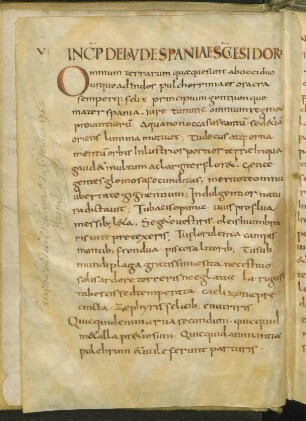 V INCP DELAUDE SPANIAE SCI ESIDOR
Omnium terrarum quaeque sunt ab occiduo
usque ad indos pulchorrima er o sacra
semperque felix principum gentiumque
mater spania. iure tu nunc omnium regina
provintiarum. A qua non occasus tantum sed etiam
oriens lumina mutuet. Tu decus atq orna
mentum orbis inlustrior portio terrae in qua
gaudet multum ac largiter floret Getice
gentes gloriosa fecunditas, merito te omniu
ubertate gignentium Indulgentior natu
ra dictavit. Tu bacis opima uvis proflua
messib; laeta. Segete vestiris. oleis inumbra
ris vite praetexeris. Tu florulenta campis
montib; frondua piscosa litorib; Tu sub
mundi plaga gratissima sita nec estivo
solis ardore torreris nec glaciae rigore
tabescis sed temperata caeli zona prae
cincta Zephyris felicib; enutriris
Quicquid enim arva fecundum quicquid
metalla praetiosum. Quicquid animantue
pulchrum & utile ferunt parturis.